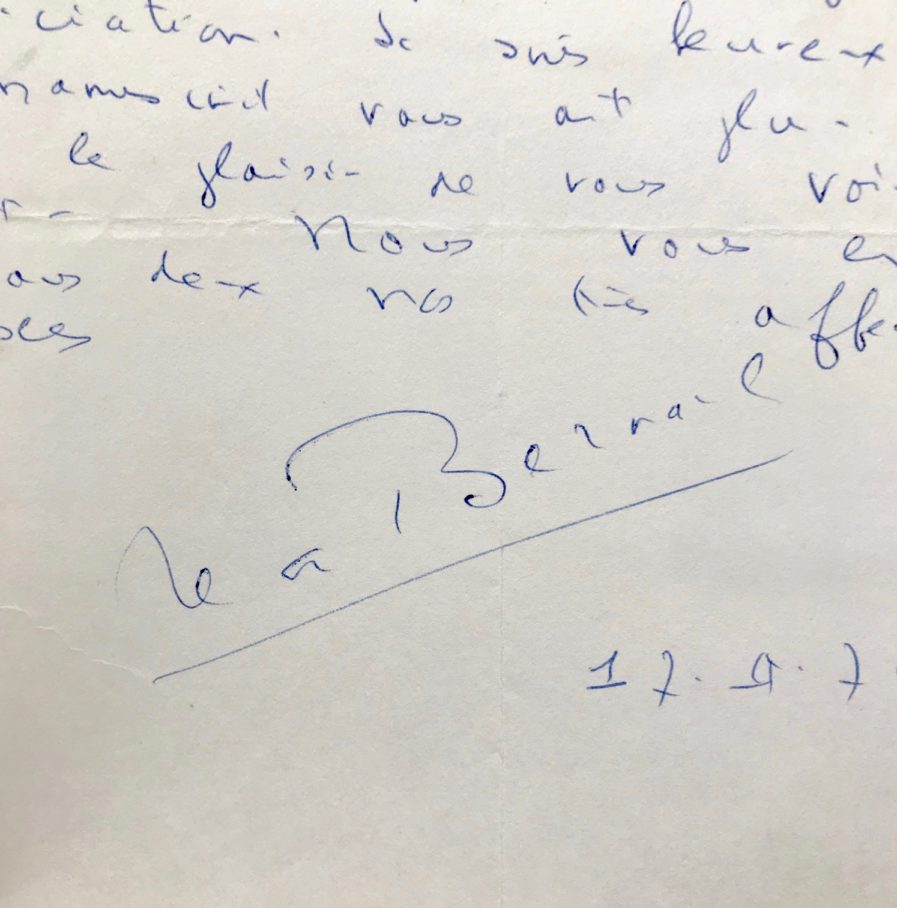 ciation. Je suis heureux
manuscrit vous ait plu.
le plaisir de vous voir
Nous vous en
ous deux nos très affec
ses
Jean Bernard
17. 9. 7